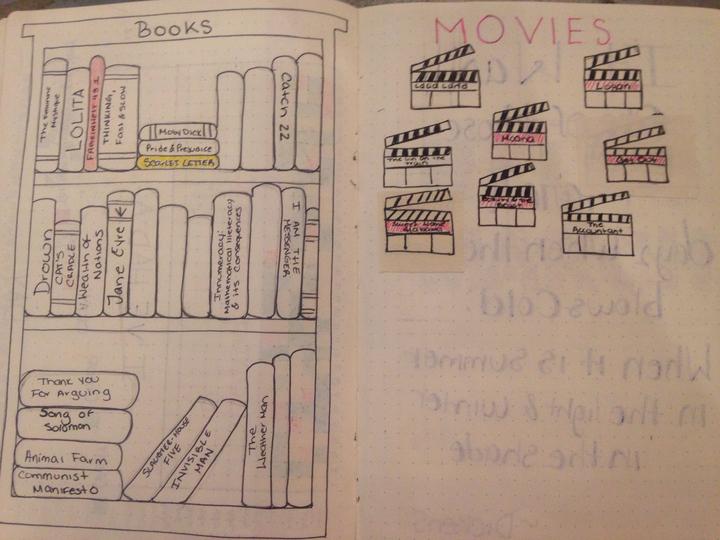 BOOKS
The Feminine
Mystique
LOLITA
FAHRENHEIT 451
THINKING,
Fast & SLOW
MOBY DICK
Pride & Prejudice
SCARLET LETTER
Catch 22
Drown
CAT'S
CRADLE
Wealth of
Nations
Jane Eyre
Innumeracy:
Mathematical Illiteracy
& its Consequences
I AM THE
MESSENGER
THANK YOU
FOR ARGUING
Song of
Solomon
Animal Farm
Communist
Manifesto
SLAUGHTER-HOUSE
FIVE
INVISIBLE
MAN
The
Weather Man
MOVIES
Logan
Moana
Get Out
Sweet Home
Alabama
The
Accountant